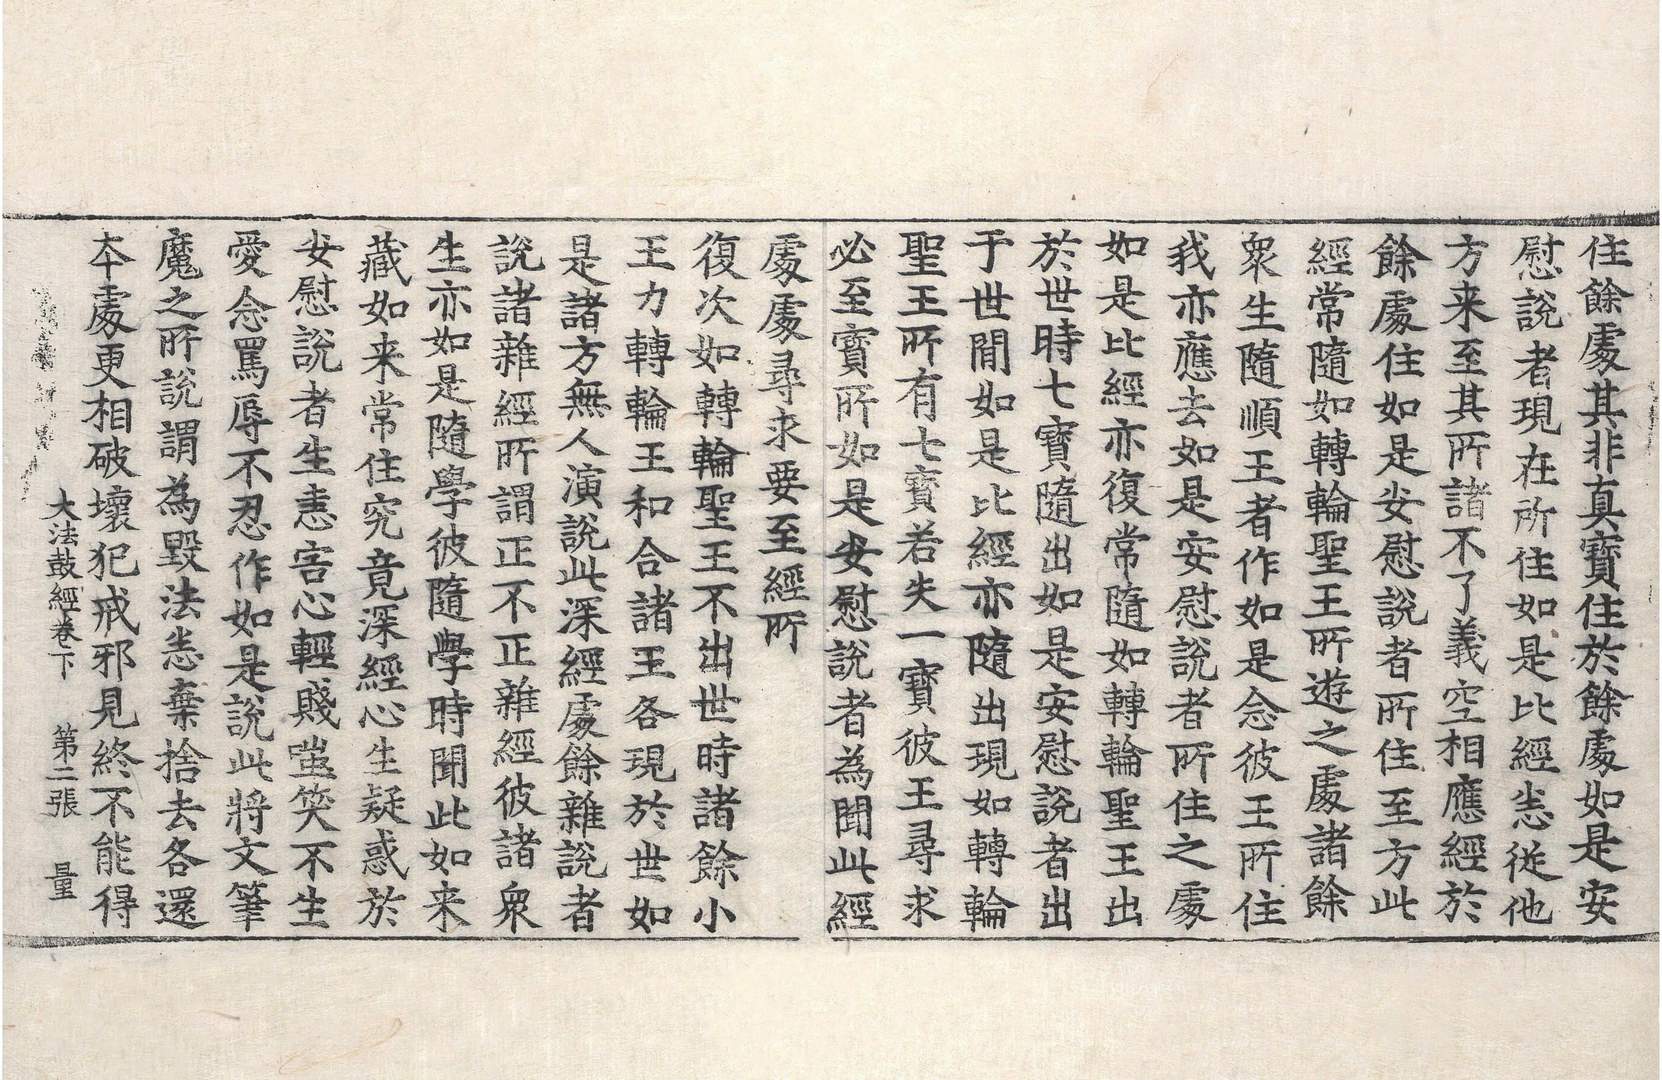 住餘處其非真寶住於餘處如是安
慰說者現在所住如是比經悉從他
方来至其所諸不了義空相應經於
餘處住如是安慰說者所住至方此
經常隨如轉輪聖王所遊之處諸餘
衆生隨順王者作如是念彼王所住
我亦應去如是安慰說者所住之處
如是比經亦復常隨如轉輪聖王出
於世時七寶隨出如是安慰說者出
于世間如是比經亦隨出現如轉輪
聖王所有七寶若失一寶彼王尋求
必至寶所如是安慰說者為聞此經
處處尋求要至經所
復次如轉輪聖王不出世時諸餘小
王力轉輪王和合諸王各現於世如
是諸方無人演說此深經處餘雜說者
說諸雜經所謂正不正雜經彼諸衆
生亦如是隨學彼隨學時聞此如来
藏如来常住究竟深經心生疑惑於
安慰說者生恚害心輕賤嗤笑不生
愛念罵辱不忍作如是說此將文筆
魔之所說謂為毀法悉棄捨去各還
本處更相破壞犯戒邪見終不能得
大法鼓經卷下 第二張 量